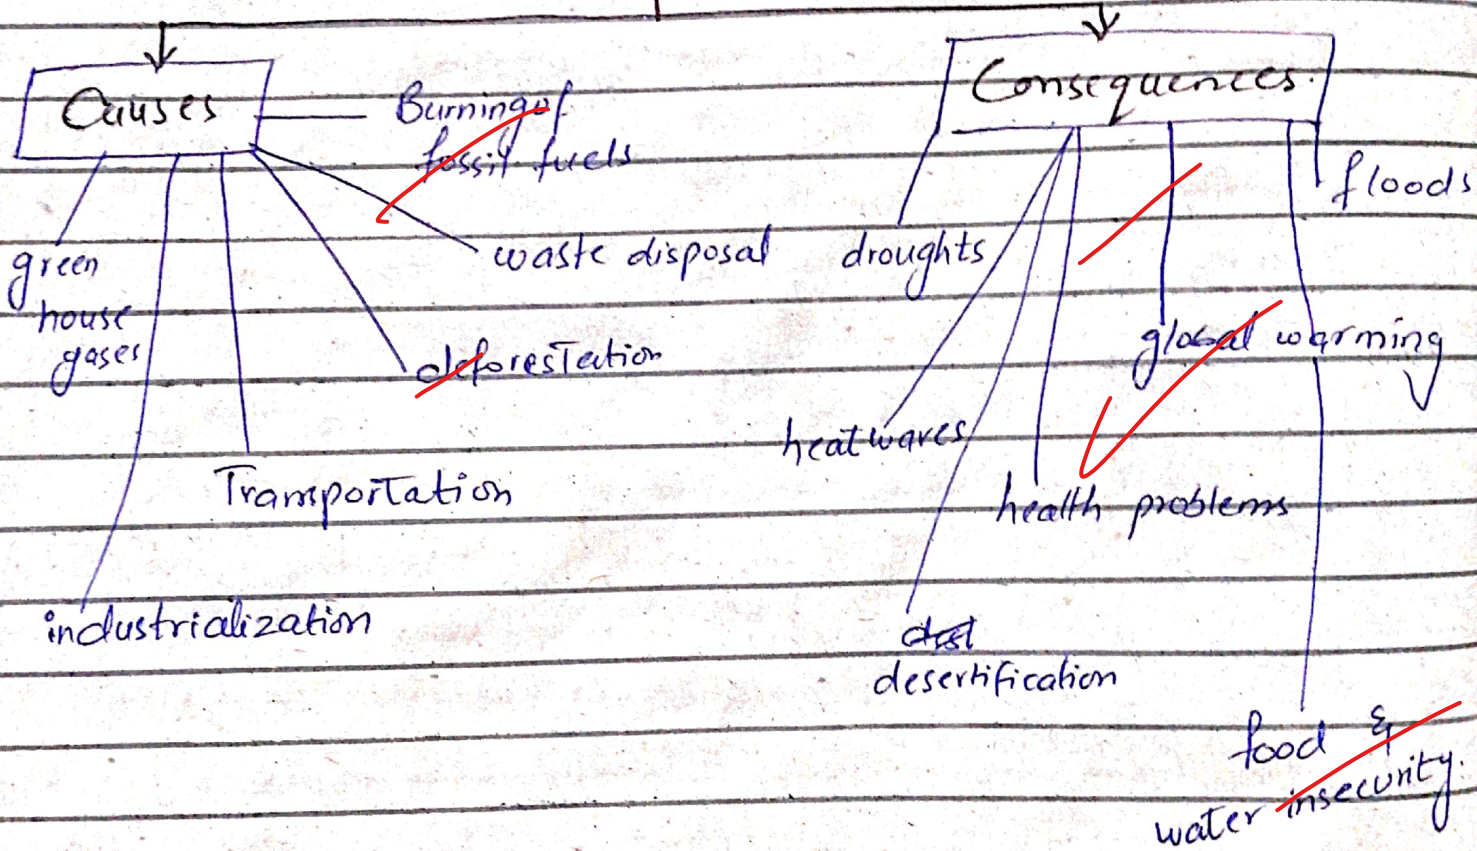 Causes
Burning of
fossil fuels
waste disposal
deforestation
Transportation
industrialization
green
house
gases
Consequences.
floods
droughts
global warming
heatwaves
health problems
desertification
food &
water insecurity.